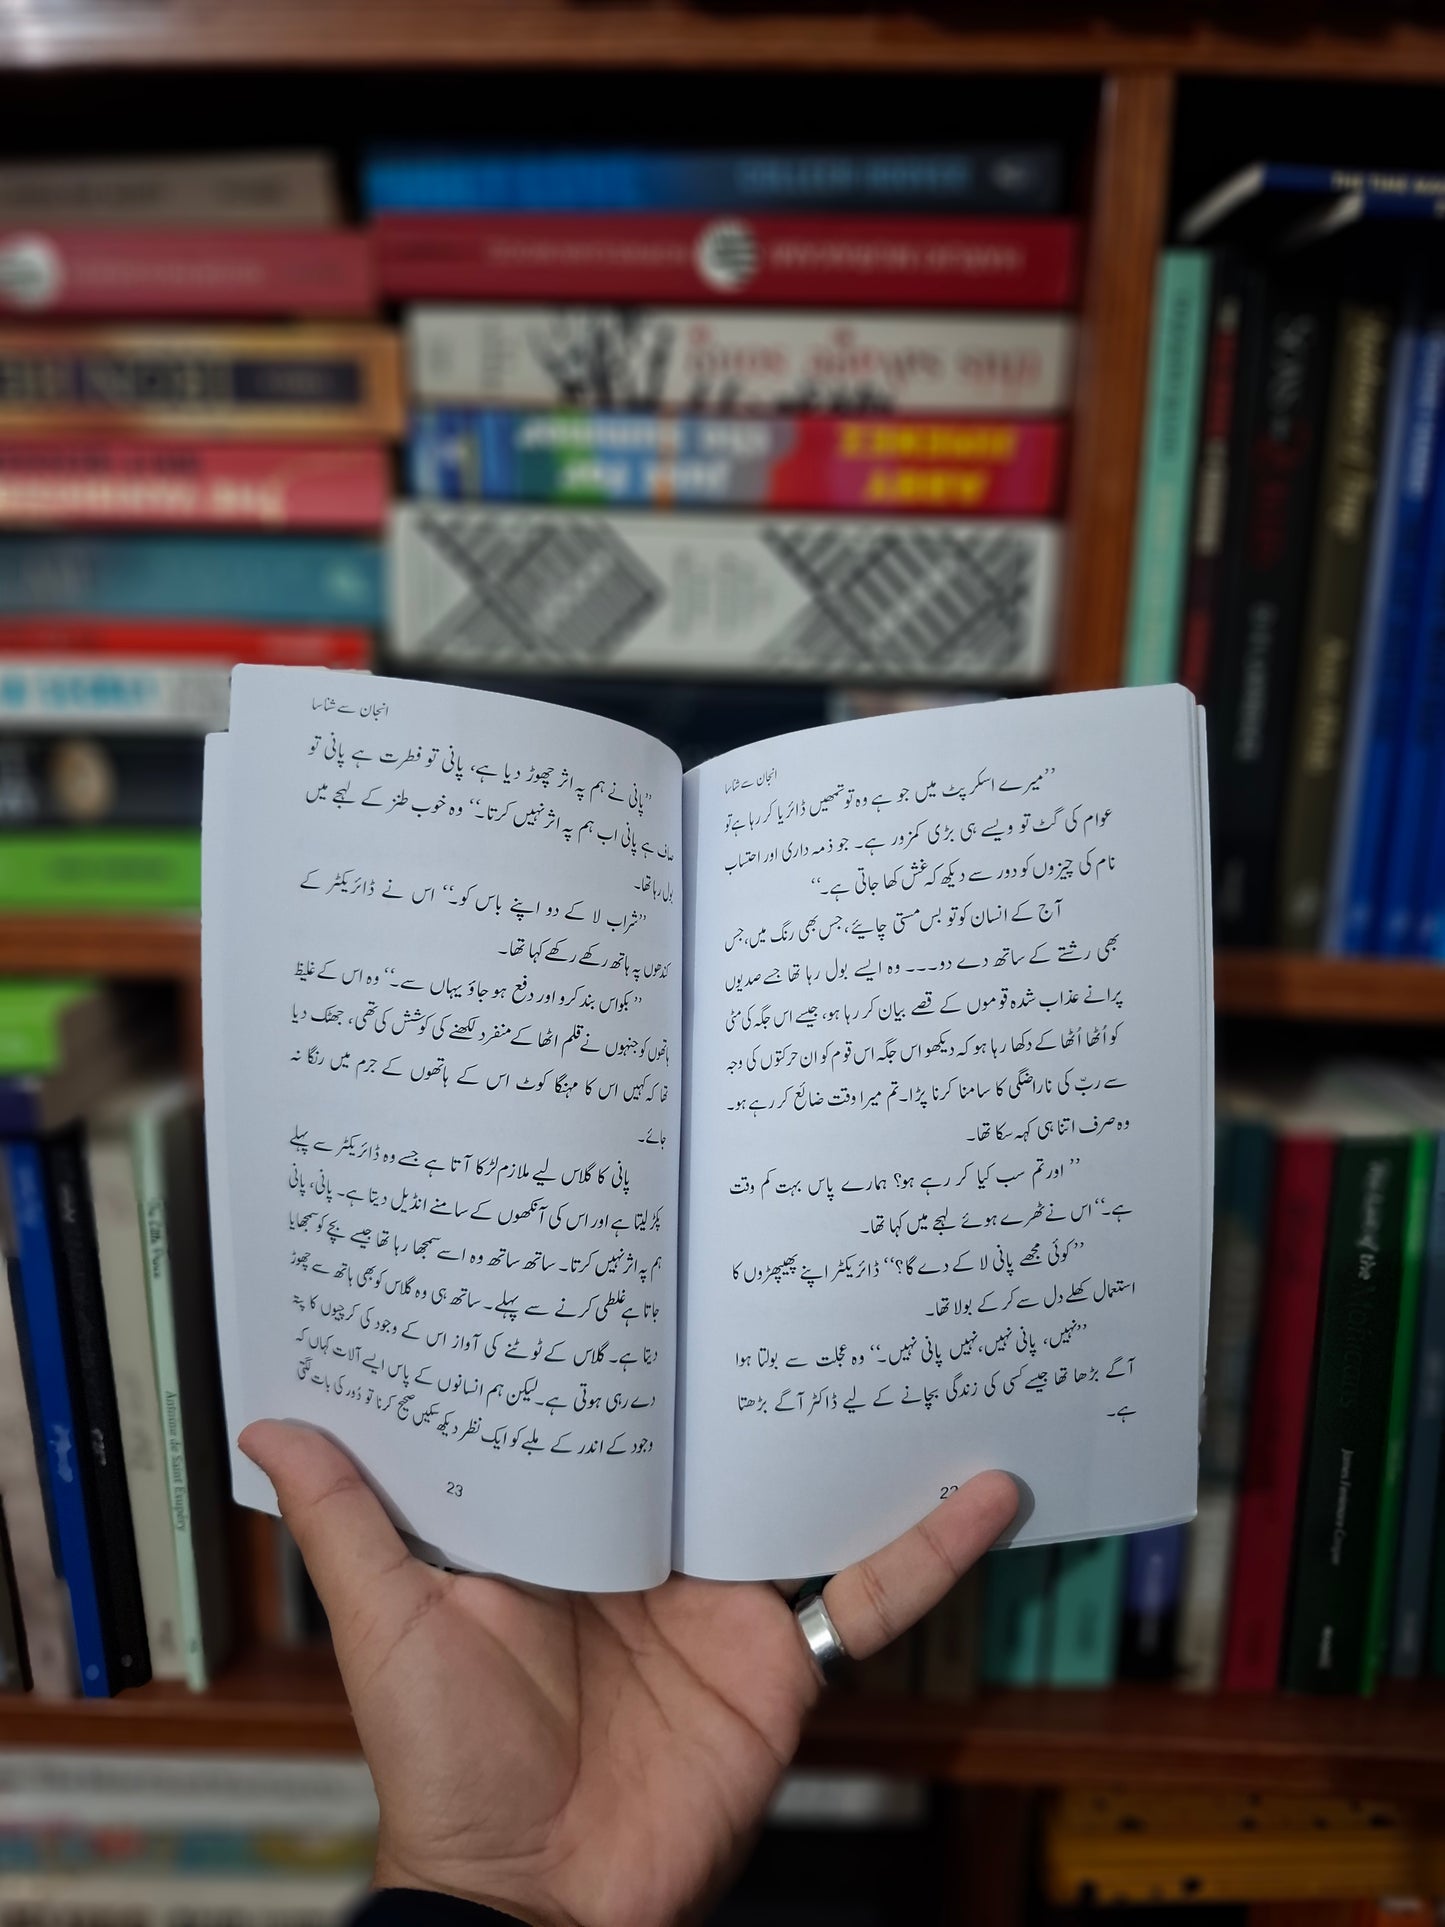 انجان سے شناسا
”میرے اسکرپٹ میں جو ہے وہ تو تمھیں ڈائریا کر رہا ہے تو
عوام کی گٹ تو ویسے ہی بڑی کمزور ہے۔ جو ذمہ داری اور احتساب
نام کی چیزوں کو دور سے دیکھ کہ غش کھا جاتی ہے۔“
آج کے انسان کو تو بس مستی چاہیئے، جس بھی رنگ میں، جس
بھی رشتے کے ساتھ دے دو۔۔۔ وہ ایسے بول رہا تھا جسے صدیوں
پرانے عذاب شدہ قوموں کے قصے بیان کر رہا ہو، جیسے اس جگہ کی مٹی
کو اُٹھا اُٹھا کے دکھا رہا ہو کہ دیکھو اس جگہ اس قوم کو ان حرکتوں کی وجہ
سے ربّ کی ناراضگی کا سامنا کرنا پڑا۔ تم میرا وقت ضائع کر رہے ہو۔
وہ صرف اتنا ہی کہہ سکا تھا۔
” اور تم سب کیا کر رہے ہو؟ ہمارے پاس بہت کم وقت
ہے۔“ اس نے ٹھرے ہوئے لہجے میں کہا تھا۔
”کوئی مجھے پانی لا کے دے گا؟“ ڈائریکٹر اپنے پھیپھڑوں کا
استعمال کھلے دل سے کر کے بولا تھا۔
”نہیں، پانی نہیں، نہیں پانی نہیں۔“ وہ عجلت سے بولتا ہوا
آگے بڑھا تھا جیسے کسی کی زندگی بچانے کے لیے ڈاکٹر آگے بڑھتا
ہے۔
22
انجان سے شناسا
”پانی نے ہم پہ اثر چھوڑ دیا ہے، پانی تو فطرت ہے پانی تو
صاف ہے پانی اب ہم پہ اثر نہیں کرتا۔“ وہ خوب طنز کے لہجے میں
بول رہا تھا۔
”شراب لا کے دو اپنے باس کو۔“ اس نے ڈائریکٹر کے
کندھوں پہ ہاتھ رکھے رکھے کہا تھا۔
” بکواس بند کرو اور دفع ہو جاؤ یہاں سے۔“ وہ اس کے غلیظ
ہاتھوں کو جنہوں نے قلم اٹھا کے منفرد لکھنے کی کوشش کی تھی، جھٹک دیا
تھا کہ کہیں اس کا مہنگا کوٹ اس کے ہاتھوں کے جرم میں رنگا نہ
جائے۔
پانی کا گلاس لیے ملازم لڑکا آتا ہے جسے وہ ڈائریکٹر سے پہلے
پکڑ لیتا ہے اور اس کی آنکھوں کے سامنے انڈیل دیتا ہے۔ پانی، پانی
ہم پہ اثر نہیں کرتا۔ ساتھ ساتھ وہ اسے سمجھا رہا تھا جیسے بچے کو سمجھایا
جاتا ہے غلطی کرنے سے پہلے۔ ساتھ ہی وہ گلاس کو بھی ہاتھ سے چھوڑ
دیتا ہے۔ گلاس کے ٹوٹنے کی آواز اس کے وجود کی کرچیوں کا پتہ
دے رہی ہوتی ہے۔ لیکن ہم انسانوں کے پاس ایسے آلات کہاں کہ
وجود کے اندر کے ملبے کو ایک نظر دیکھ سکیں صحیح کرنا تو دُور کی بات لگتی
23
ABBY
JIMENEZ
just for
the summer
The Little Prince
Antoine de Saint Exupéry